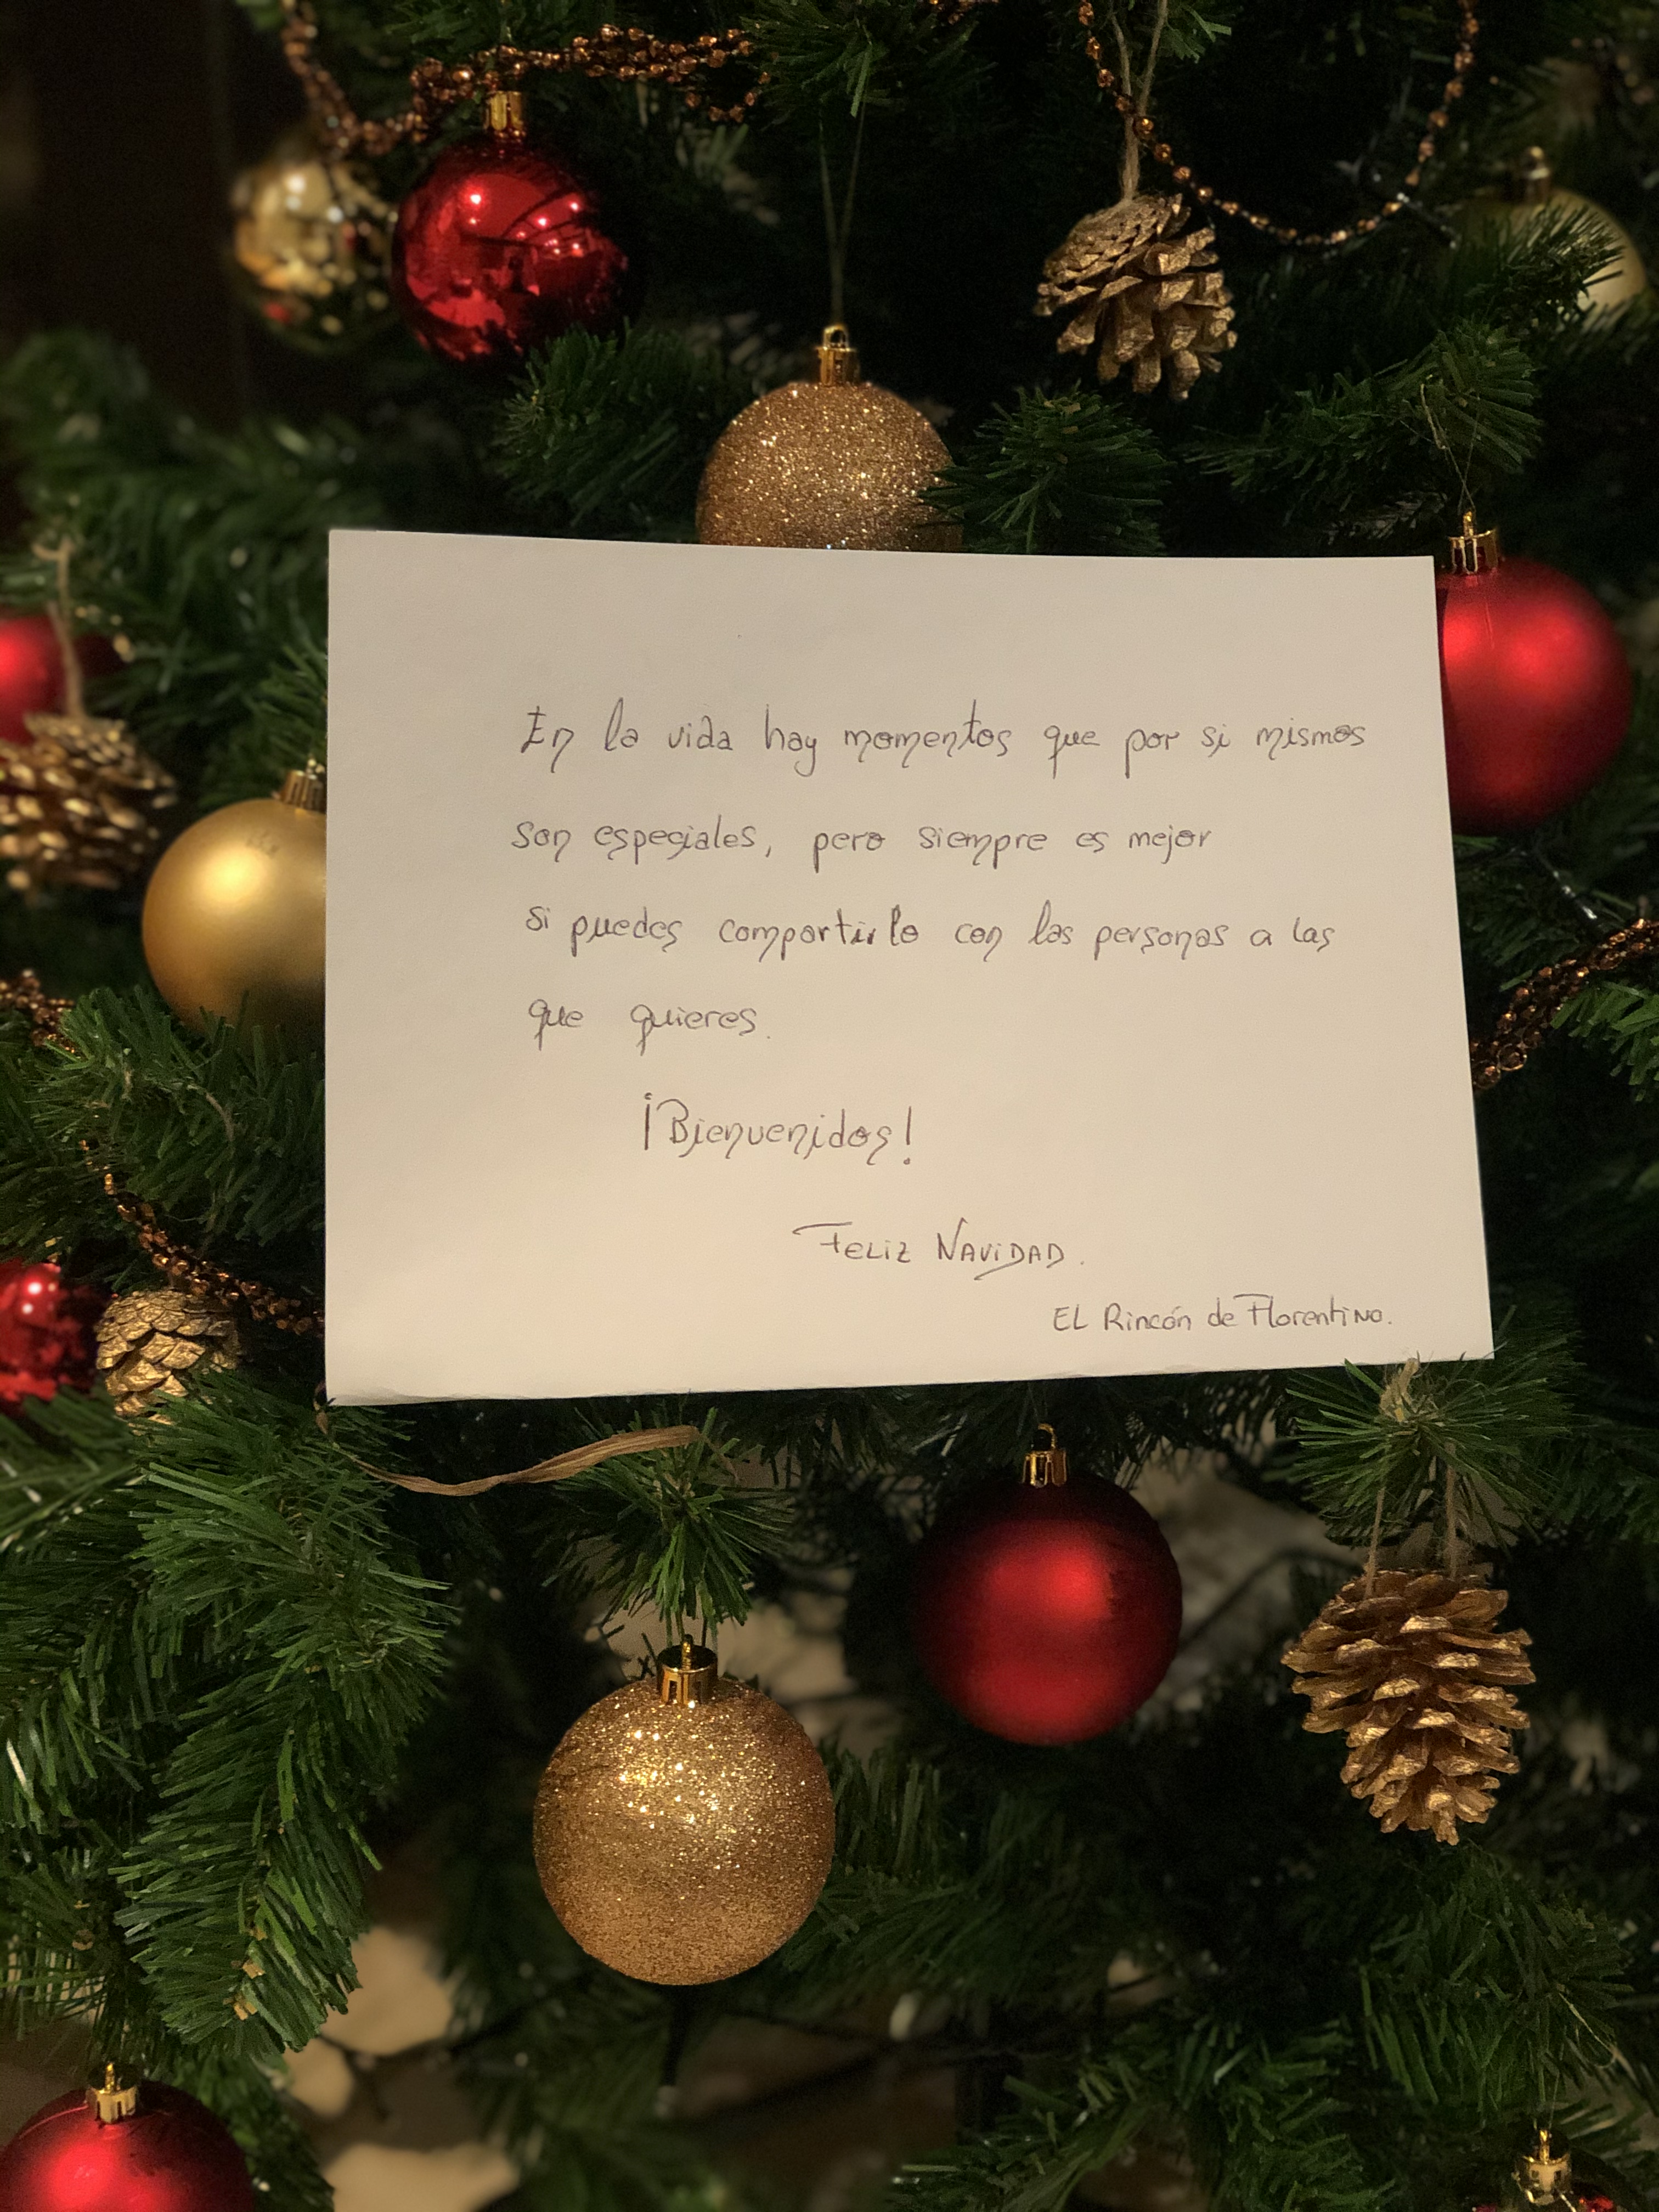 En la vida hay momentos que por si mismos
son especiales, pero siempre es mejor
si puedes compartirlo con las personas a las
que quieres.
¡Bienvenidos!
FELIZ NAVIDAD.
EL Rincón de Florentino.